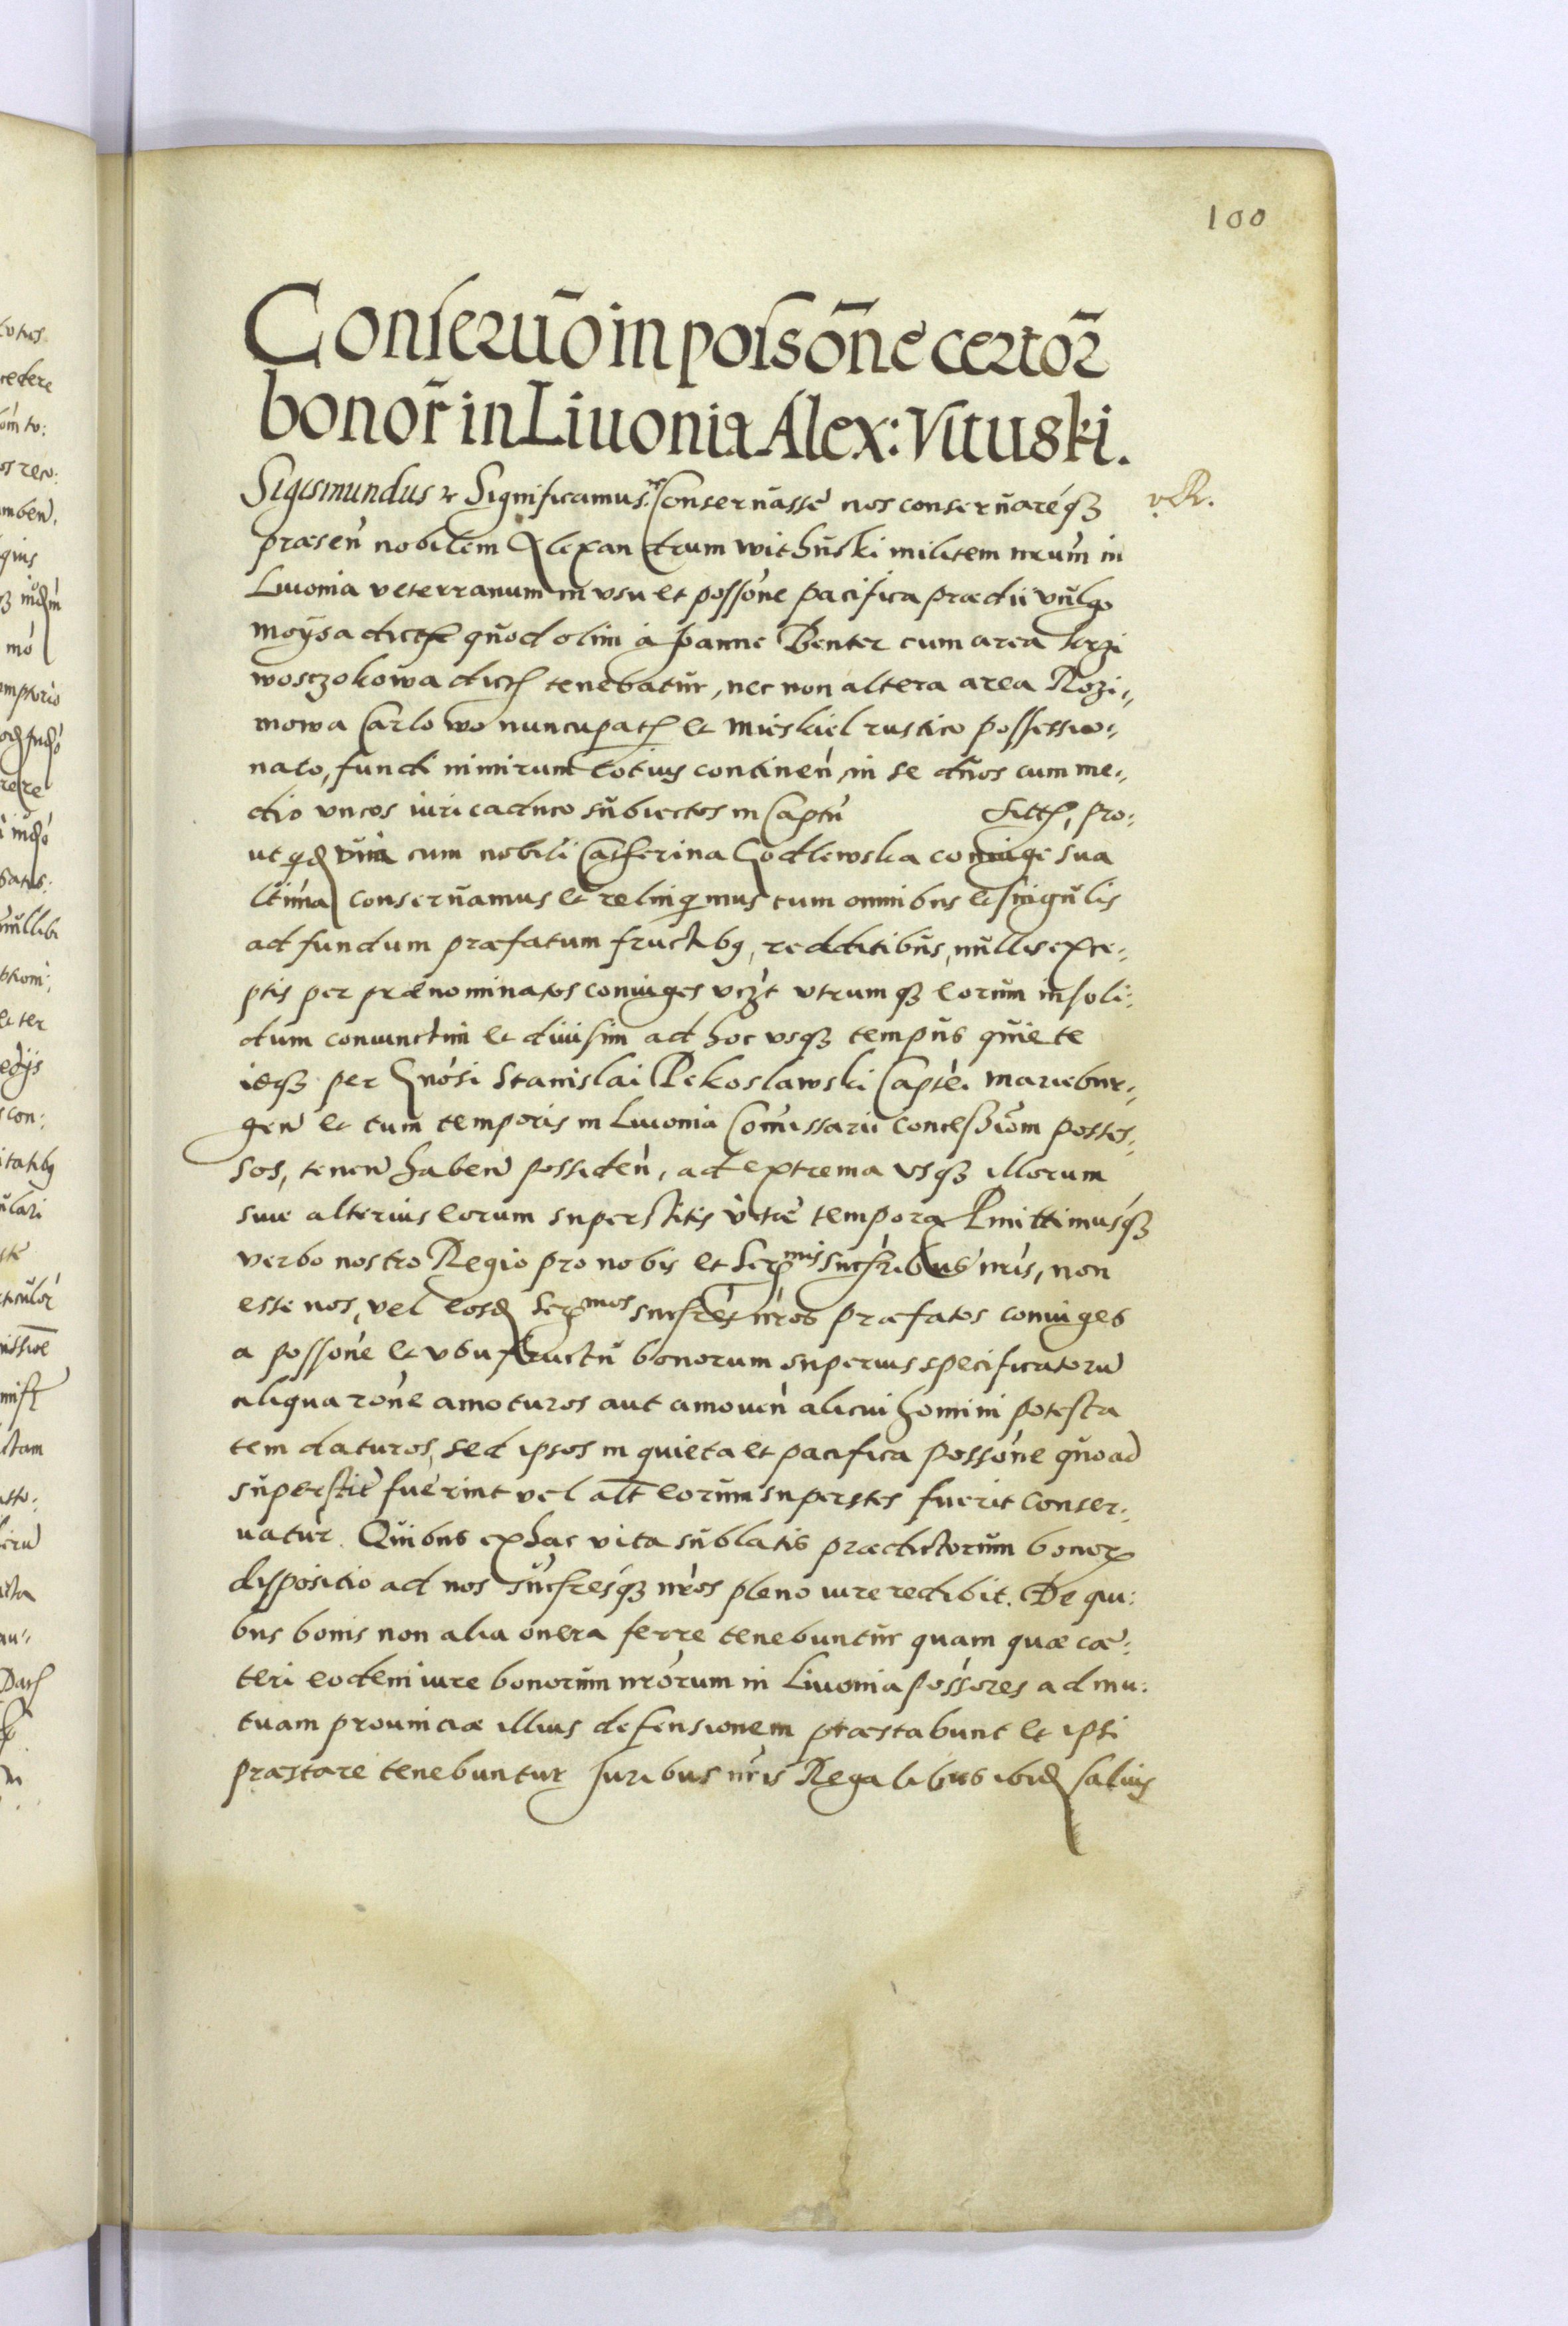 100
Conseruõ in possõne certor̃
bonor̃ in Liuonia Alex: Vituski.
Sigismundus &c Significamus &c Conseruasse nos conseruaréqꝫ
v. R.
præsen̄ nobilem Alexandrum withuski militem nrum̀ in
Liuonia veterranum in vsu et possone pacifica prædii vulgo
moysa dict quod olim a Joanne Benter cum area
woszokowa dict tenebatur, nec non altera area Rozi,,
mowa Carlowo nuncupat et mieskiel rustico possessio,,
nato, fundi nimirum totius continen̄ in se duos cum me,,
dio vncos iuri caduco subiectos in Captu sitt, pro:
ut qd vna cum nobili Catherina Godlewska coniuge sua
ltima conseruamus et relinqimus cum omnibus et singulis
ad fundum præfatum fructibꝫ, redditibus, nullis exce,,
ptis per prænominatos coniuges vczt vtrumqꝫ eorum insoli:
dum coniunctim et diuisim ad hoc vsqꝫ tempus quiete
iecꝫ per Gnosi Stanislai Pekoslawski Captei mariebur,,
gen̄ et tum temporis in Liuonia Comissarii concessiom posses,,
sos, tenen̄ haben̄ possiden̄, ad extrema vsqꝫ illorum
siue alterius eorum superstitis vitæ tempora Pmittimusqꝫ
verbo nostro Regio pro nobis et Ser mis succribus nris, non
esse nos, vel eosd Ser mos succres nros præfatos coniuges
a possone et vsufructu bonorum superius specificatoru
aliqua rone amoturos aut amouen̄ alicui homini potesta
tem daturos, sed ipsos in quieta et pacifica possone quoad
superstit fuerint vel alt eorum superstes fuerit conser,,
uatur. Quibus ex hac vita sublatis prædictorum bonor
dispositio ad nos succresqꝫ nros pleno iure redibit. De qui:
bus bonis non alia onera ferre tenebuntur quam quæ cæ:
teri eodem iure bonorum nrorum in Liuonia possores ad mu:
tuam prouinciæ illius defensionem præstabunt et ipsi
præstare tenebuntur Juribus nris Regalibus ibid saluis